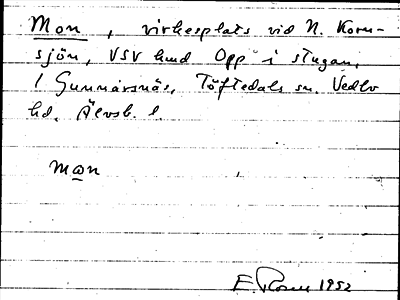 Mon, virkesplats vid N. Korn-
sjön, VSV om Opp i stugan,
1 Gunnarsnäs, Töftedals sn. Vedbo
hd. Älvsb. l.
mɷn
E. 1952